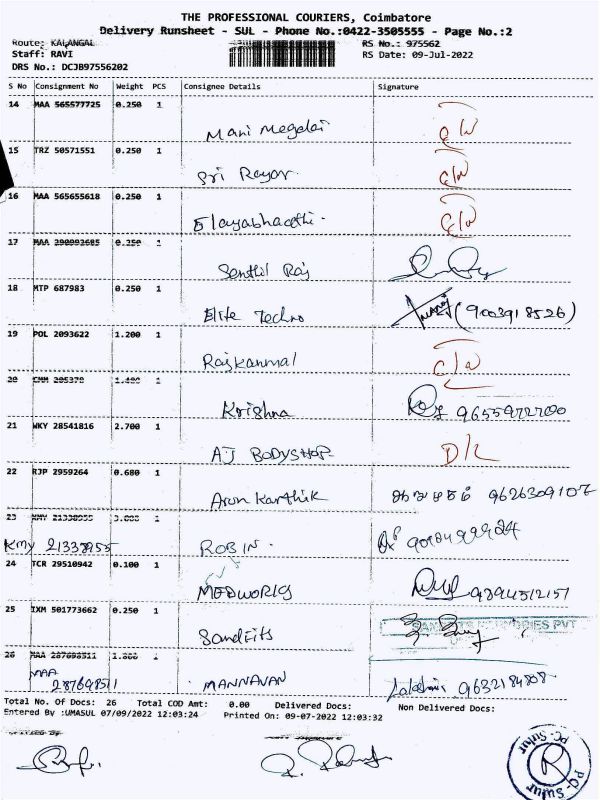 THE PROFESSIONAL COURIERS, Coimbatore
Delivery Runsheet - SUL - Phone No.:0422-3505555 - Page No.:2
Route: KALANGAL RS No.: 975562
Staff: RAVI RS Date: 09-Jul-2022
DRS No.: DCJB97556202
S No Consignment No Weight PCS Consignee Details Signature
14 MAA 565577725 0.250 1
Mani Megalai
15 TRZ 50571551 0.250 1
Sri Rayar.
16 MAA 565655618 0.250 1
Elayabhaathi.
17 MAA 290992685 0.250 1
Senthil Raj
18 MTP 687983 0.250 1
Elite Techno (9003918526)
19 POL 2093622 1.200 1
Rajkanmal
20 CMM 205370 1.480 1
Krishna 9655972700
21 WKY 28541816 2.700 1
AJ BODYSHOP D/L
22 RJP 2959264 0.680 1
Arun Karthik 9626309107
23 1
KMY 21338955 ROBIN.
24 TCR 29510942 0.100 1
MEDWORKS 9894512157
25 IXM 501773662 0.250 1
Sandfits
26 MAA 287698511 1
MAA
287698511 MANNAVAN Lakshmi 9632184808
Total No. Of Docs: 26 Total COD Amt: 0.00 Delivered Docs: Non Delivered Docs:
Entered By :UMASUL 07/09/2022 12:03:24 Printed On: 09-07-2022 12:03:32
PC-Sulur
PC-Sulur